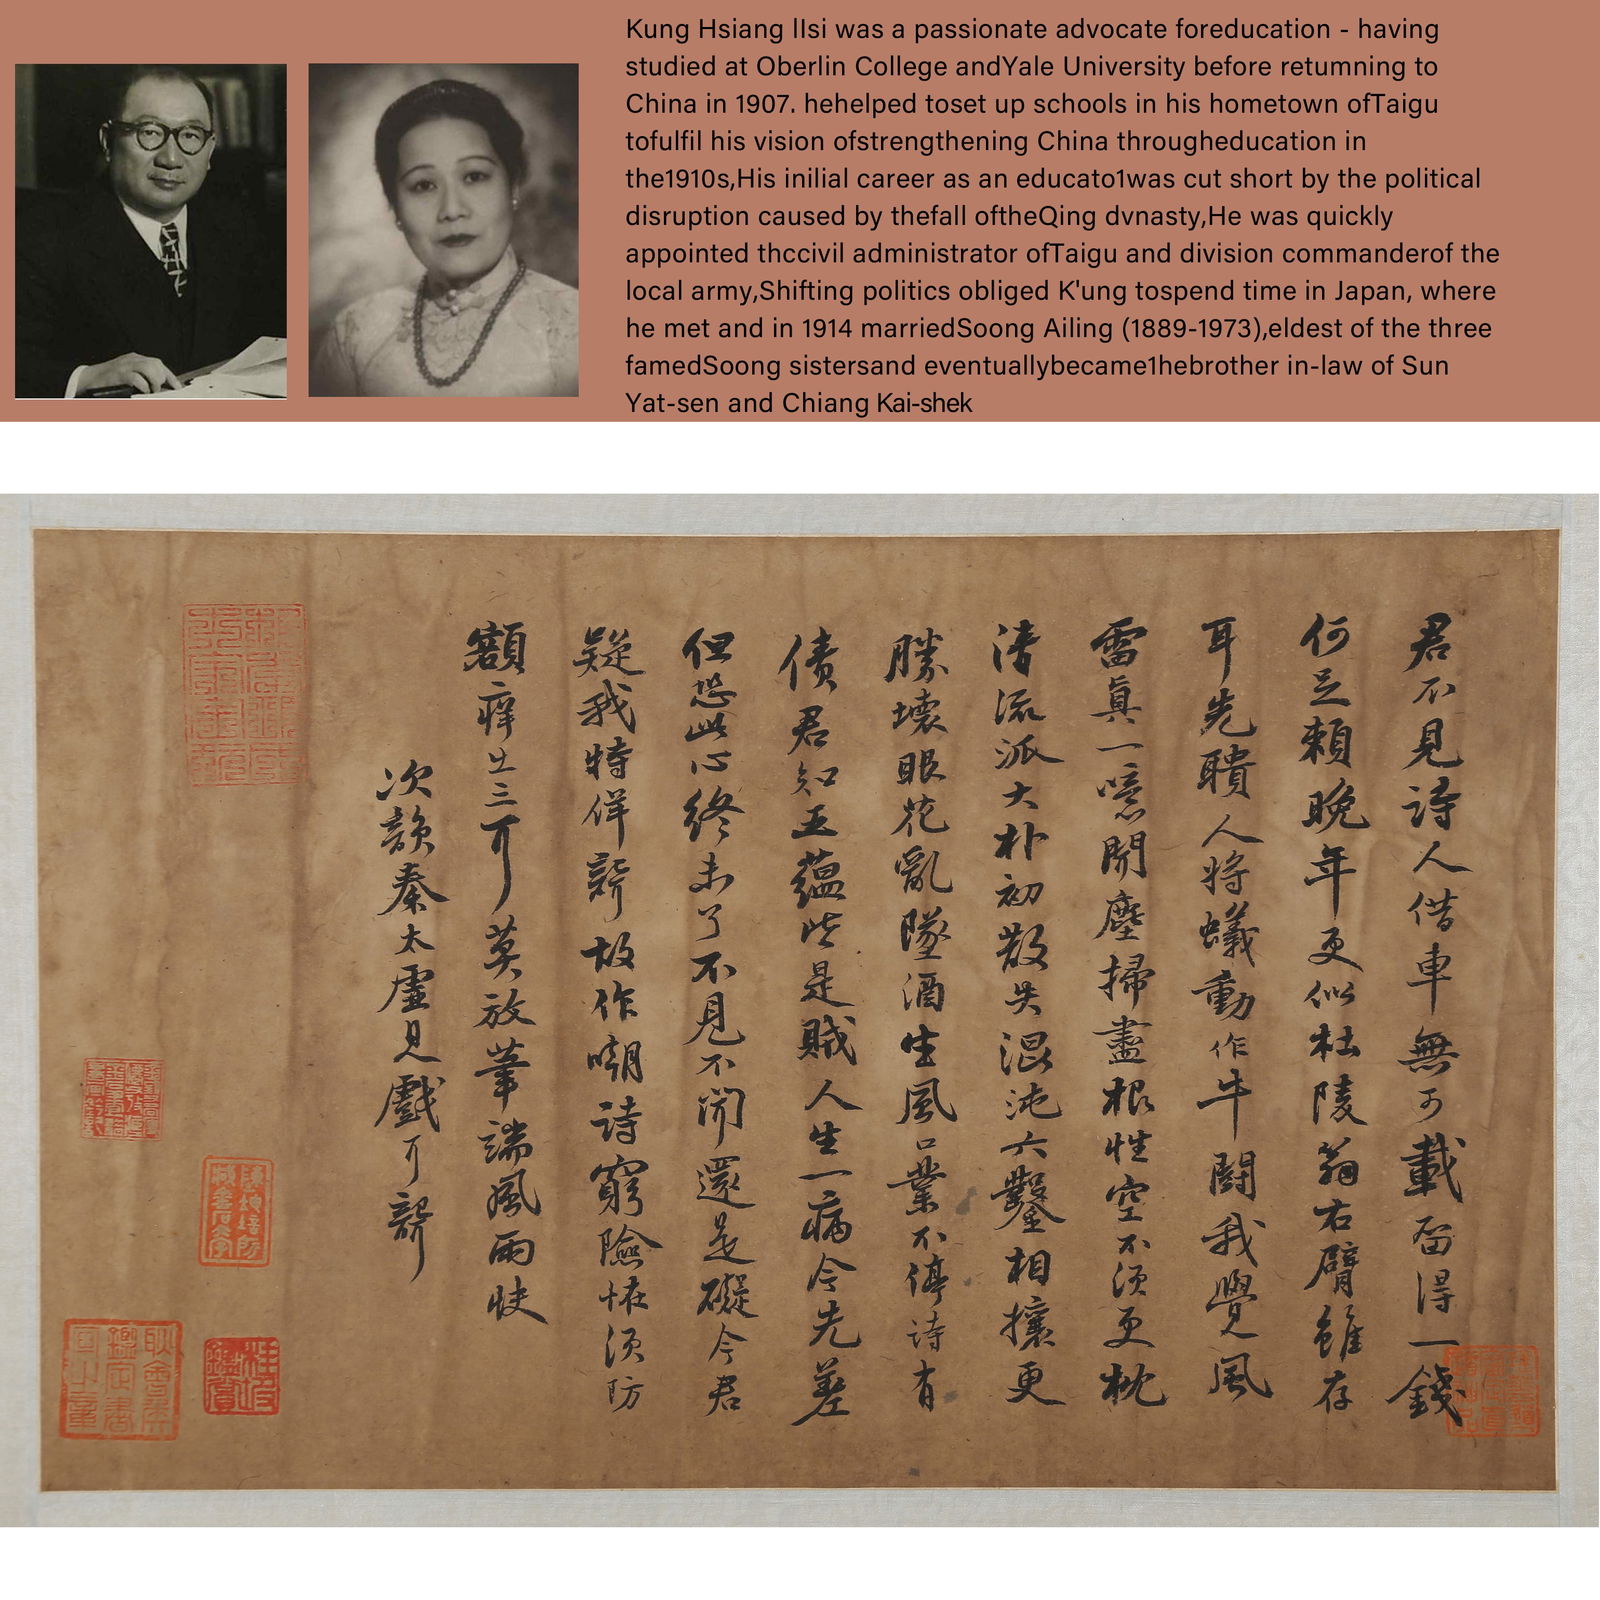 Kung Hsiang lIsi was a passionate advocate foreducation - having
studied at Oberlin College andYale University before retumning to
China in 1907. hehelped toset up schools in his hometown ofTaigu
tofulfil his vision ofstrengthening China througheducation in
the1910s,His inilial career as an educato1was cut short by the political
disruption caused by thefall oftheQing dvnasty,He was quickly
appointed thccivil administrator ofTaigu and division commanderof the
local army,Shifting politics obliged K'ung tospend time in Japan, where
he met and in 1914 marriedSoong Ailing (1889-1973),eldest of the three
famedSoong sistersand eventuallybecame1hebrother in-law of Sun
Yat-sen and Chiang Kai-shek
君不見詩人借車無可載留得一錢
何足賴晚年更似杜陵翁右臂雖存
耳先聵人將蟻動作牛鬪我覺風
雷真一噫聞塵掃盡根性空不須更枕
清流派大朴初散失混沌六鑿相攘更
勝壞眼花亂墜酒生風口業不停詩有
債君知五蘊皆是賊人生一病今先差
但恐此心終未了不見不聞還是礙今君
疑我特佯聾故作嘲詩窮險怪須防
額癢出三耳莫放筆端風雨快
次韻秦太虛見戲耳聾